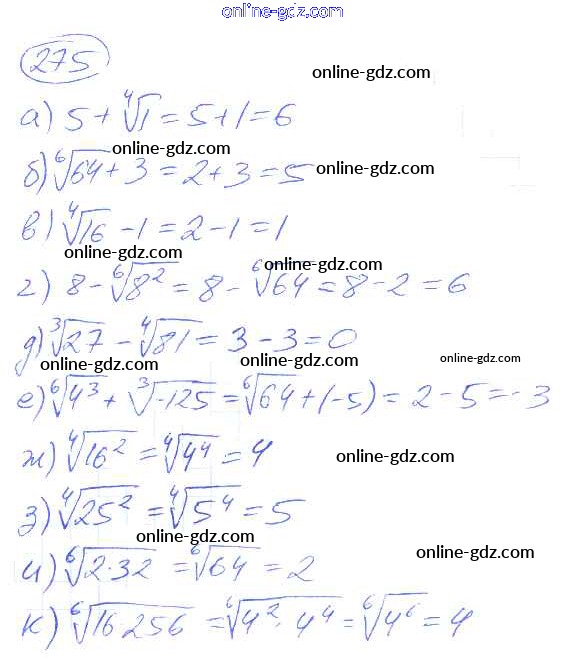 online-gdz.com
275
online-gdz.com
а) 5 + ⁴√1 = 5 + 1 = 6
online-gdz.com
б) ⁶√64 + 3 = 2 + 3 = 5
online-gdz.com
в) ⁴√16 - 1 = 2 - 1 = 1
online-gdz.com
online-gdz.com
г) 8 - ⁶√8² = 8 - ⁶√64 = 8 - 2 = 6
д) ³√27 - ⁴√81 = 3 - 3 = 0
online-gdz.com
online-gdz.com
online-gdz.com
е) ⁶√4³ + ³√-125 = ⁶√64 + (-5) = 2 - 5 = -3
ж) ⁴√16² = ⁴√4⁴ = 4
online-gdz.com
з) ⁴√25² = ⁴√5⁴ = 5
online-gdz.com
и) ⁶√2·32 = ⁶√64 = 2
online-gdz.com
к) ⁶√16·256 = ⁶√4²·4⁴ = ⁶√4⁶ = 4